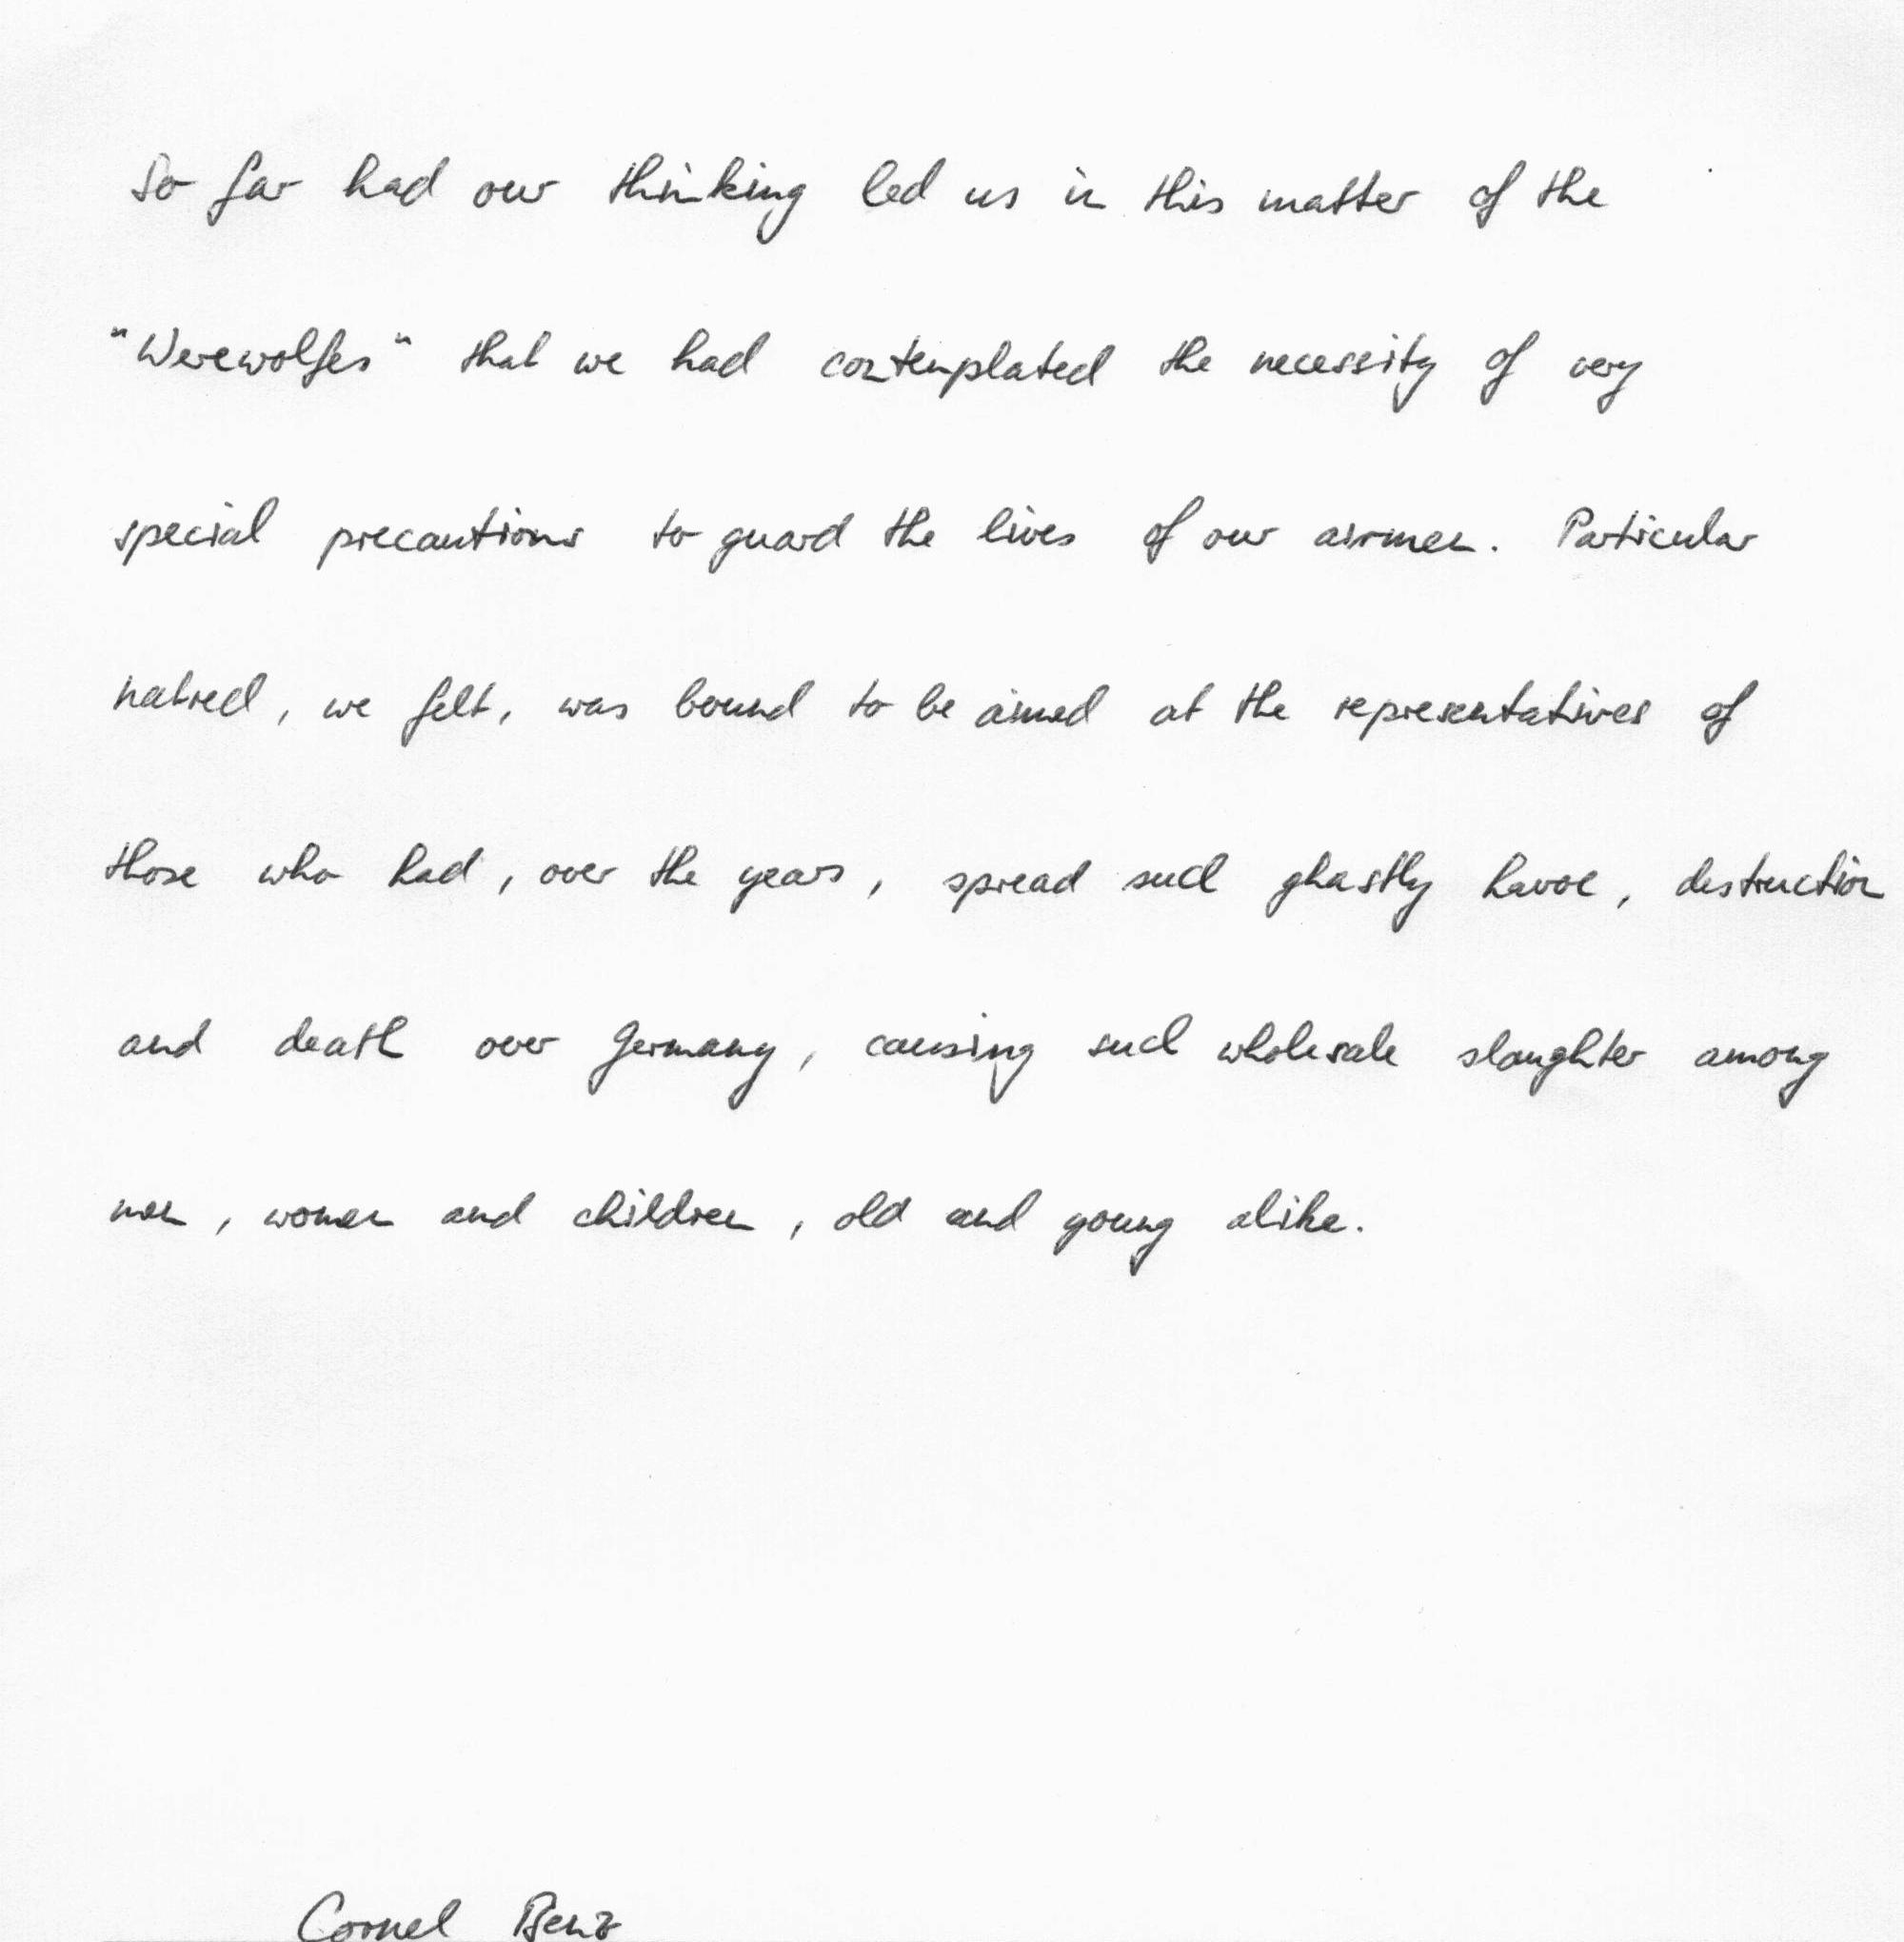 So far had our thinking led us in this matter of the
"Werewolfes" that we had contemplated the necessity of very
special precautions to guard the lives of our airmen. Particular
hatred, we felt, was bound to be aimed at the representatives of
those who had, over the years, spread such ghastly havoc, destruction
and death over Germany, causing such wholesale slaughter among
men, women and children, old and young alike.
Cornel Benz